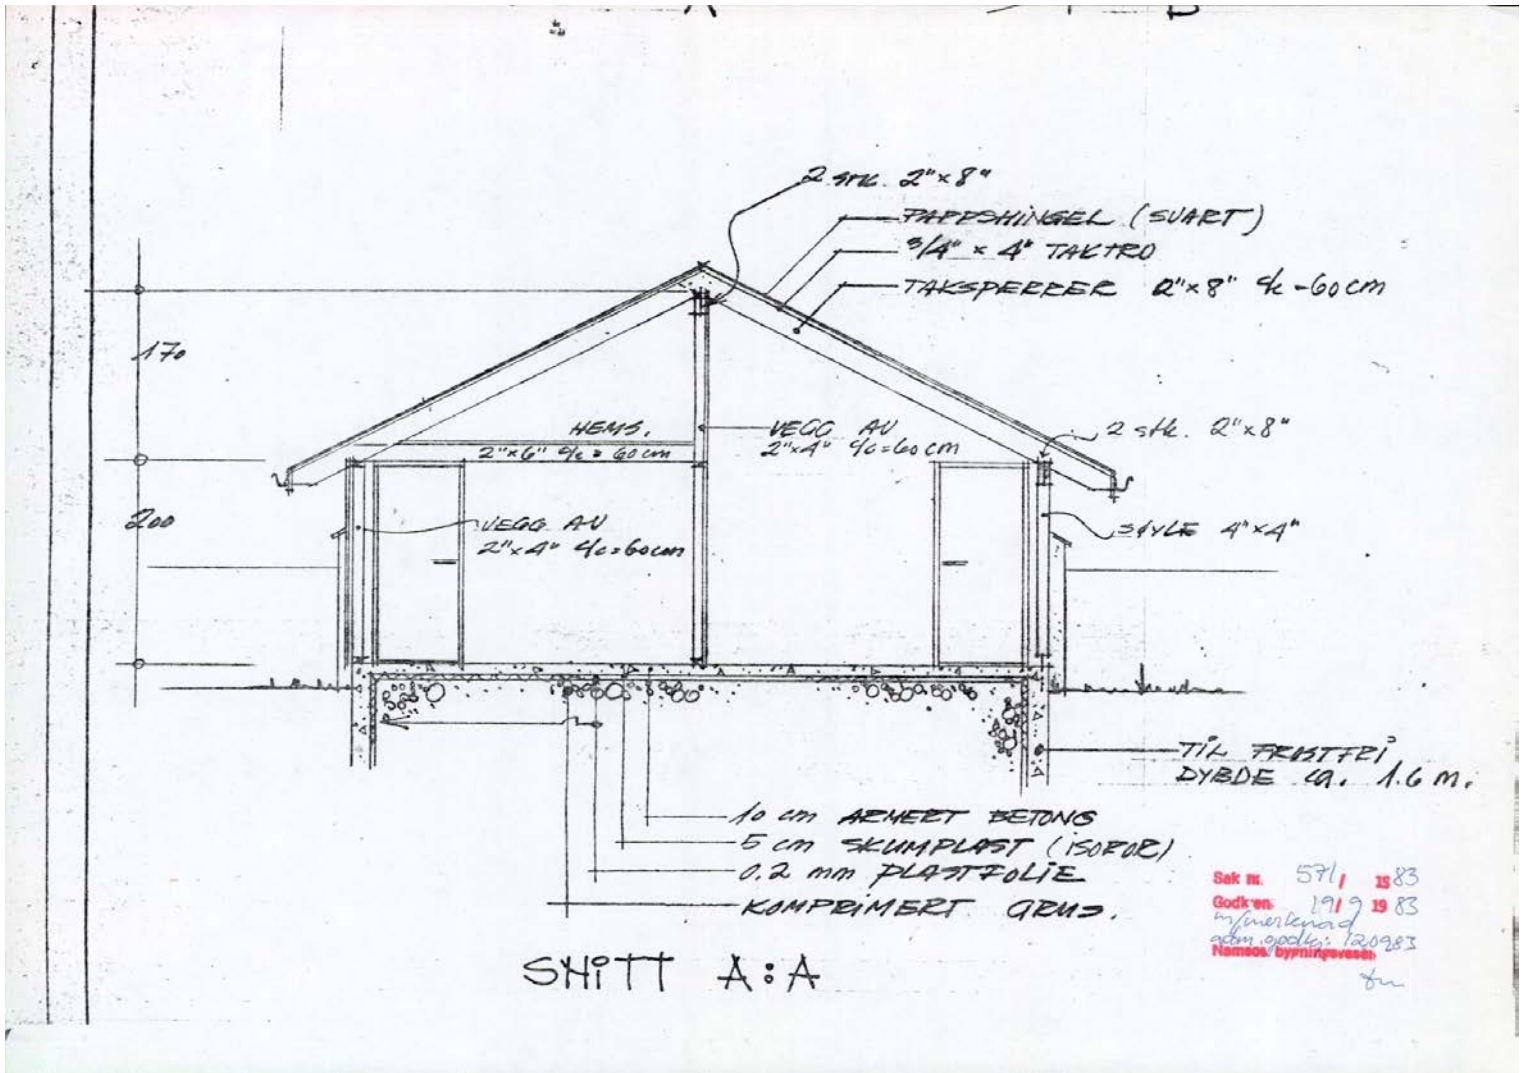 2 STK. 2"x8"
PAPPSHINGEL (SVART)
3/4" x 4" TAKTRO
TAKSPERRER 2"x8" c/c - 60 cm
170
HEMS.
2"x6" c/c = 60 cm
VEGG AV
2"x4" c/c = 60 cm
2 stk. 2"x8"
200
VEGG AV
2"x4" c/c = 60 cm
SØYLE 4"x4"
TIL FROSTFRI
DYBDE ca. 1.6 m.
10 cm ARMERT BETONG
5 cm SKUMPLAST (ISOPOR)
0.2 mm PLASTFOLIE
KOMPRIMERT GRUS.
SNITT A:A
Sak nr. 571/ 1983
Godk'en 19/9 1983
m/merknad
adm. godkj. 120983
Namsos bygningsvesen